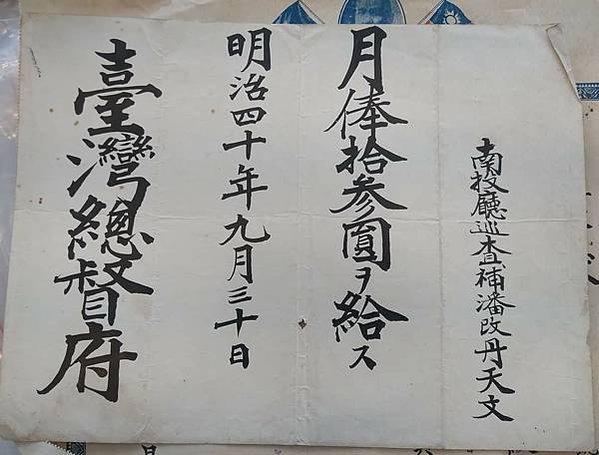 南投廳巡査補潘改丹天文
月俸拾参圓ヲ給ス
明治四十年九月三十日
臺灣總督府